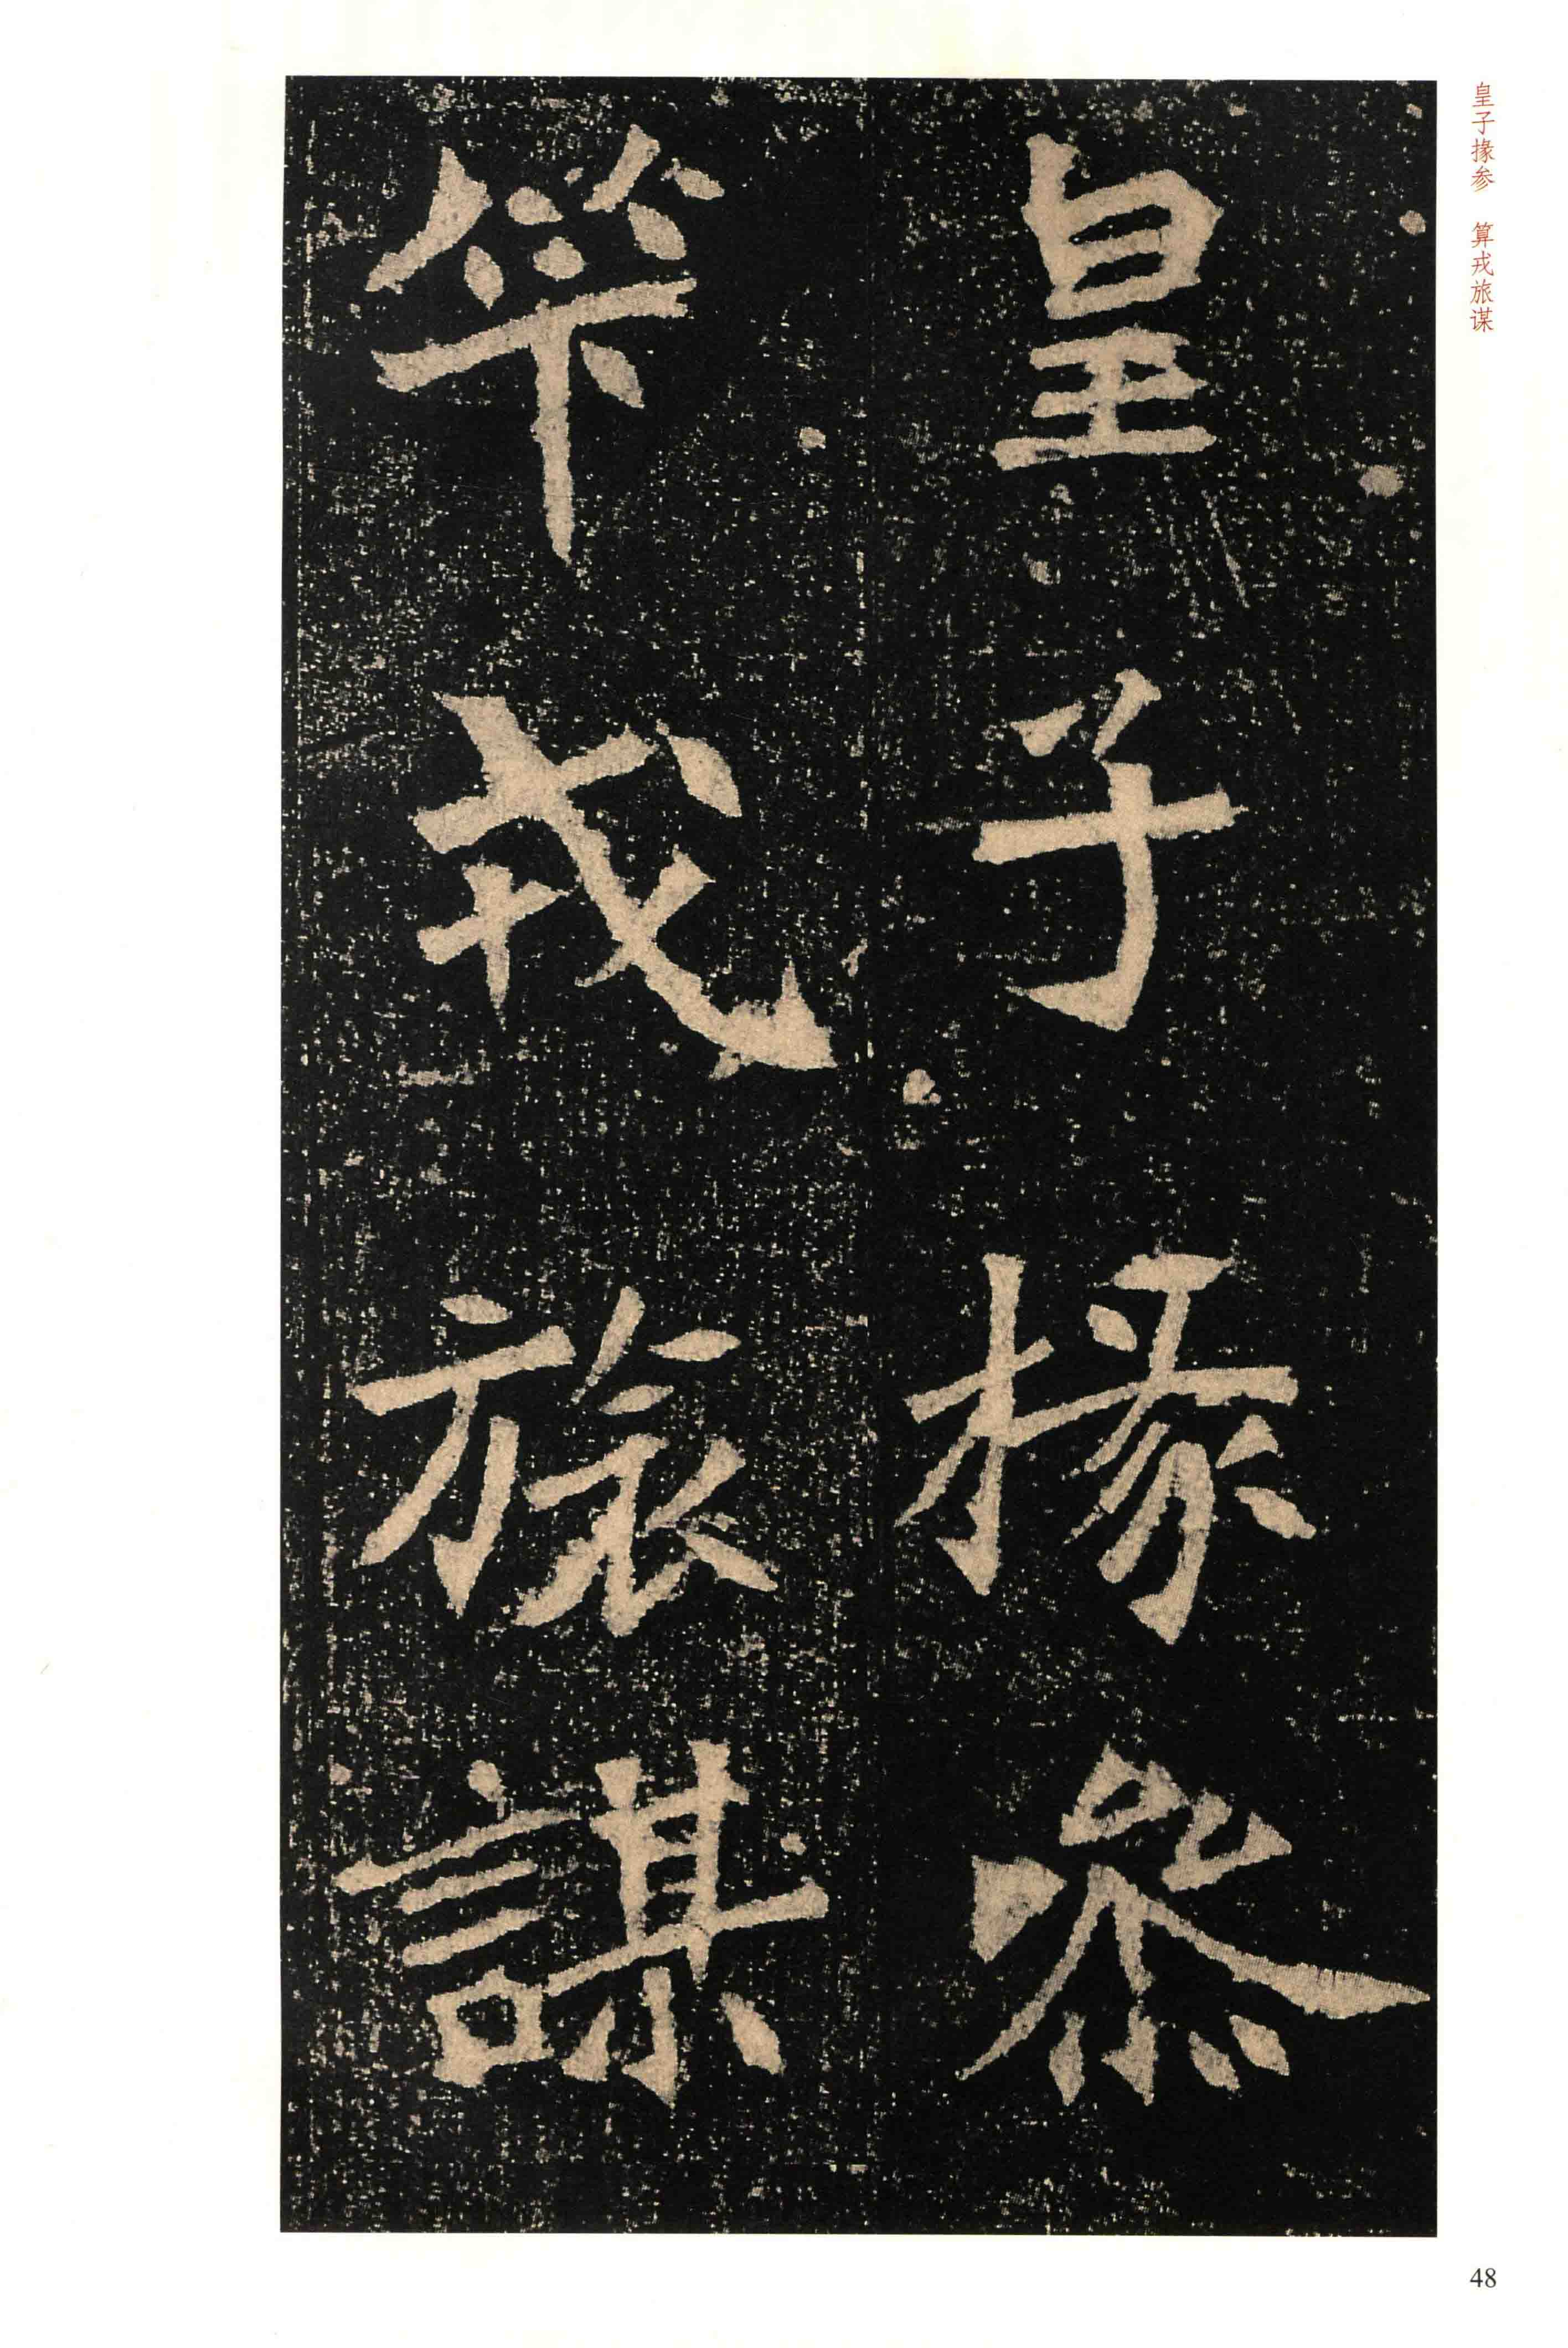 皇子掾参　算戎旅谋
皇子掾叅
笇戎旅謀
48